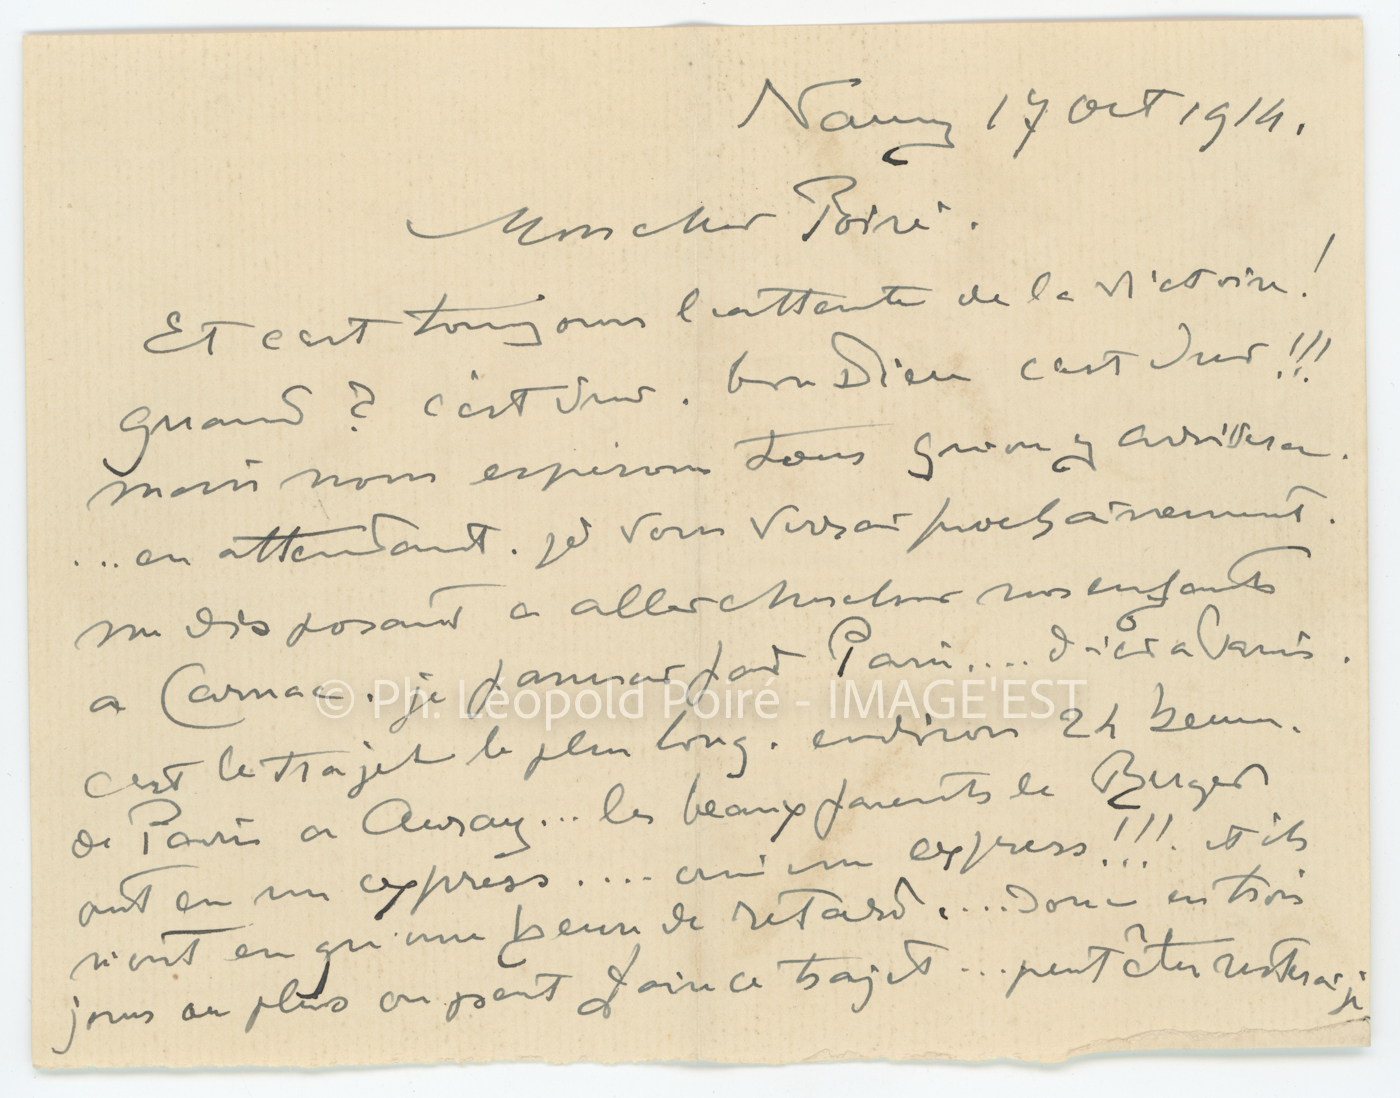 Nancy 17 Oct 1914.
Mon cher Poiré.
Et c'est toujours l'attente de la victoire!
quand? c'est dur. bon Dieu c'est dur!!!
mais nous espérons tous qu'on y arrivera.
...en attendant. je vous verrai prochainement.
me disposant a aller chercher nos enfants
a Carnac. je passerai par Paris.... d'ici a Paris.
© Ph. Léopold Poiré - IMAGE'EST
c'est le trajet le plus long. environ 24 heures.
de Paris a Auray... les beaux parents de Berger
ont eu un express.... oui un express!!! et ils
n'ont eu qu'une heure de retard.... Donc en trois
jours au plus on peut faire ce trajet... peut être resterai je